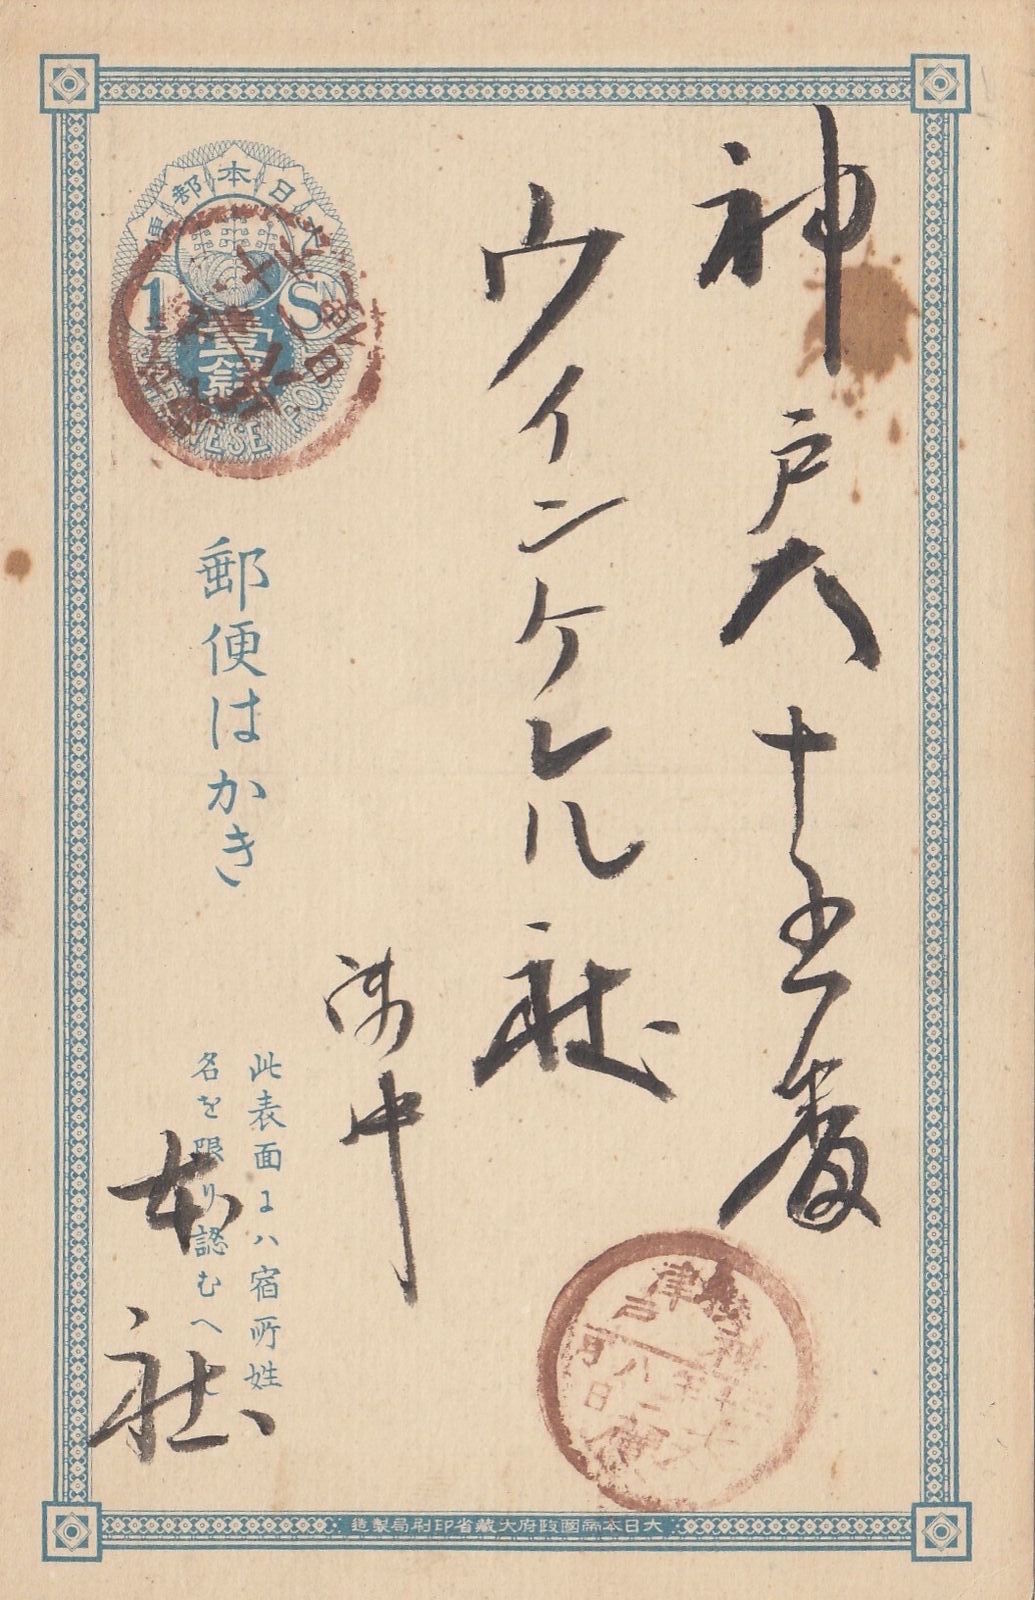 神戸八十五番
ウインケレル社
御中
本社
大日本郵便
1 S
壹銭
JAPANESE POST
郵便はかき
此表面ニハ宿所姓
名を限り認むへし
摂津
神戸
大日本帝國政府大藏省印刷局製造